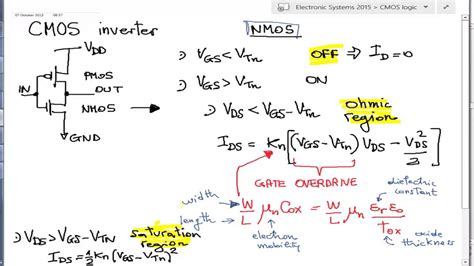 07 October 2015 08:57
Electronic Systems 2015 > CMOS logic
CMOS inverter
VDD
PMOS
IN
OUT
NMOS
GND
NMOS
1) VGS < VTn OFF ⇒ ID = 0
2) VGS > VTn ON
1) VDS < VGS - VTn ohmic region
IDS = Kn [(VGS - VTn) VDS - VDS²/2]
GATE OVERDRIVE
width
length
W/L μn Cox = W/L μn εr ε0 / tox
electron mobility
dielectric constant
oxide thickness
2) VDS > VGS - VTn saturation region
IDS = 1/2 Kn (VGS - VTn)²